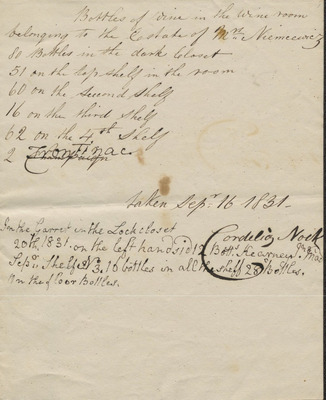 Bottles of wine in the wine room
belonging to the Estate of Mrs. Niemcewicz
80 Bottles in the dark Closet
51 on the top shelf in the room
60 on the second shelf
16 on the third shelf
62 on the 4th shelf
2 Frontinac.
taken Sepr. 16 1831—
Cordelia Nock
In the Garret in the Lock closet
20th, 1831. on the left hand sid 12 Bott.
Sepr. Shelf N 3. 16 bottles in all the shelf 28 Bottles.
on the floor Bottles.